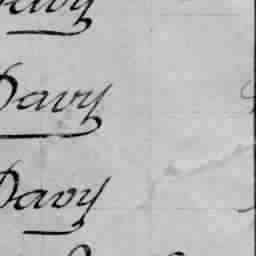 Davy
Davy
Davy